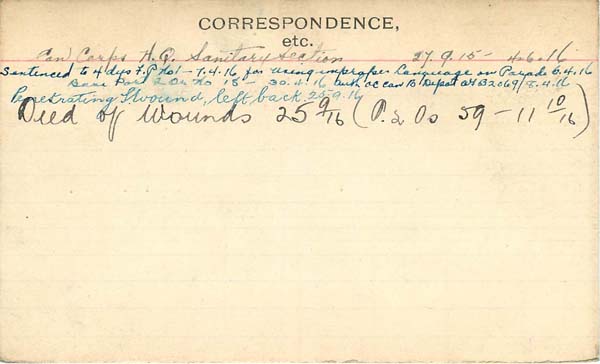 CORRESPONDENCE,
etc.
Can Corps H.Q. Sanitary Section 27.9.15 - 4.6.16
Sentenced to 4 dys F.P No1 - 7.4.16 for using improper Language on Parade 6.4.16
Base Part 2 Os No 18 - 30.4.16 with OC Can B Depot 8.4.16
Penetrating G wound, left back 25.9.16
Died of Wounds 25 9/16 (P. 2 Os 59 - 11 10/16)